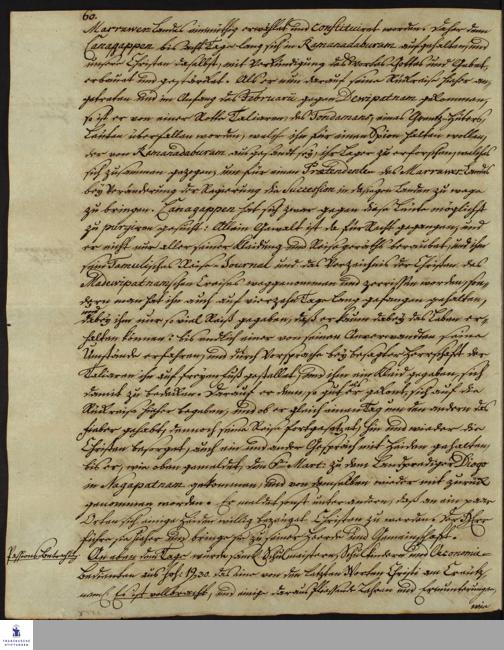 60.
Marrawer Landes einmüthig erwählet und constituiret worden. Daher denn
Canagappen bis acht Tage lang sich in Ramanadaburam aufgehalten, und
unsere Christen daselbst, mit Verkündigung des Wortes Gottes und Gebet,
erbauet und gestärcket. Als er nun darauf seine Rückreise hieher an-
getreten und im Anfang des Februarii gegen Dewipatnam gekommen,
so ist er von einer Rotte Taliaren, des Tondamans, eines Grentz-Hüters,
Leuten überfallen worden, welche ihn für einen Spion halten wollen,
der von Ramanadaburam ausgesandt sey, ihr Lager zu erforschen, welches
sich zusammen gezogen, um für einen Prätendenten des Marrawer Landes
bey Veränderung der Regierung die Succession in dasigen Landen zu wege
zu bringen. Canagappen hat sich zwar gegen diese Leute möglichst
zu purgiren gesucht: Allein Gewalt ist da für Recht gegangen, und
er nicht nur aller seiner Kleidung und Reisegeräths beraubet, und ihm
sein Tamulisches Reise Journal und das Verzeichnis der Christen des
Madewipatnamschen Creises weggenommen und zerrissen worden, son-
dern man hat ihn auch auf vierzehn Tage lang gefangen gehalten,
dabey ihm nur so viel Reiß gegeben, daß er kaum dabey das Leben er-
halten können: bis endlich einer von seinen Anverwandten seine
Umstände erfahren, und durch Vorsprache bey besagter Herrschaft der
Taliaren ihn auf freyen Fuß gestellet, und ihm ein Kleid gegeben, sich
damit zu bedecken. Darauf er denn, so gut er gekont, sich auf die
Rückreise hieher begeben, und ob er gleich einen Tag um den andern das
Fieber gehabt, dennoch seine Reise fortgesetzet, hin und wieder die
Christen besorget, auch ein und ander Gespräch mit Heiden gehalten,
bis er, wie oben gemeldet, den 6ten Mart: zu dem Landprediger Diogo
in Nagapatnam gekommen, und von demselben wieder mit zurück
genommen worden. Er meldet sonst unter andern, daß an ein paar
Orten sich einige Heiden willig bezeiget Christen zu werden. Der HErr
führe sie hieher und bringe sie zu seiner Heerde und Gemeinschaft.
Passions Betrachtg.
An eben dem Tage wurde, samt Schulmeistern, Schulkindern und Oeconomie-
Bedienten aus Joh. 19,30. das eine von den letzten Worten Christi am Creutz,
neml. Es ist vollbracht, und einige daraus fliessende Lehren und Ermunterungen,
wie
FRANCKESCHE
STIFTUNGEN